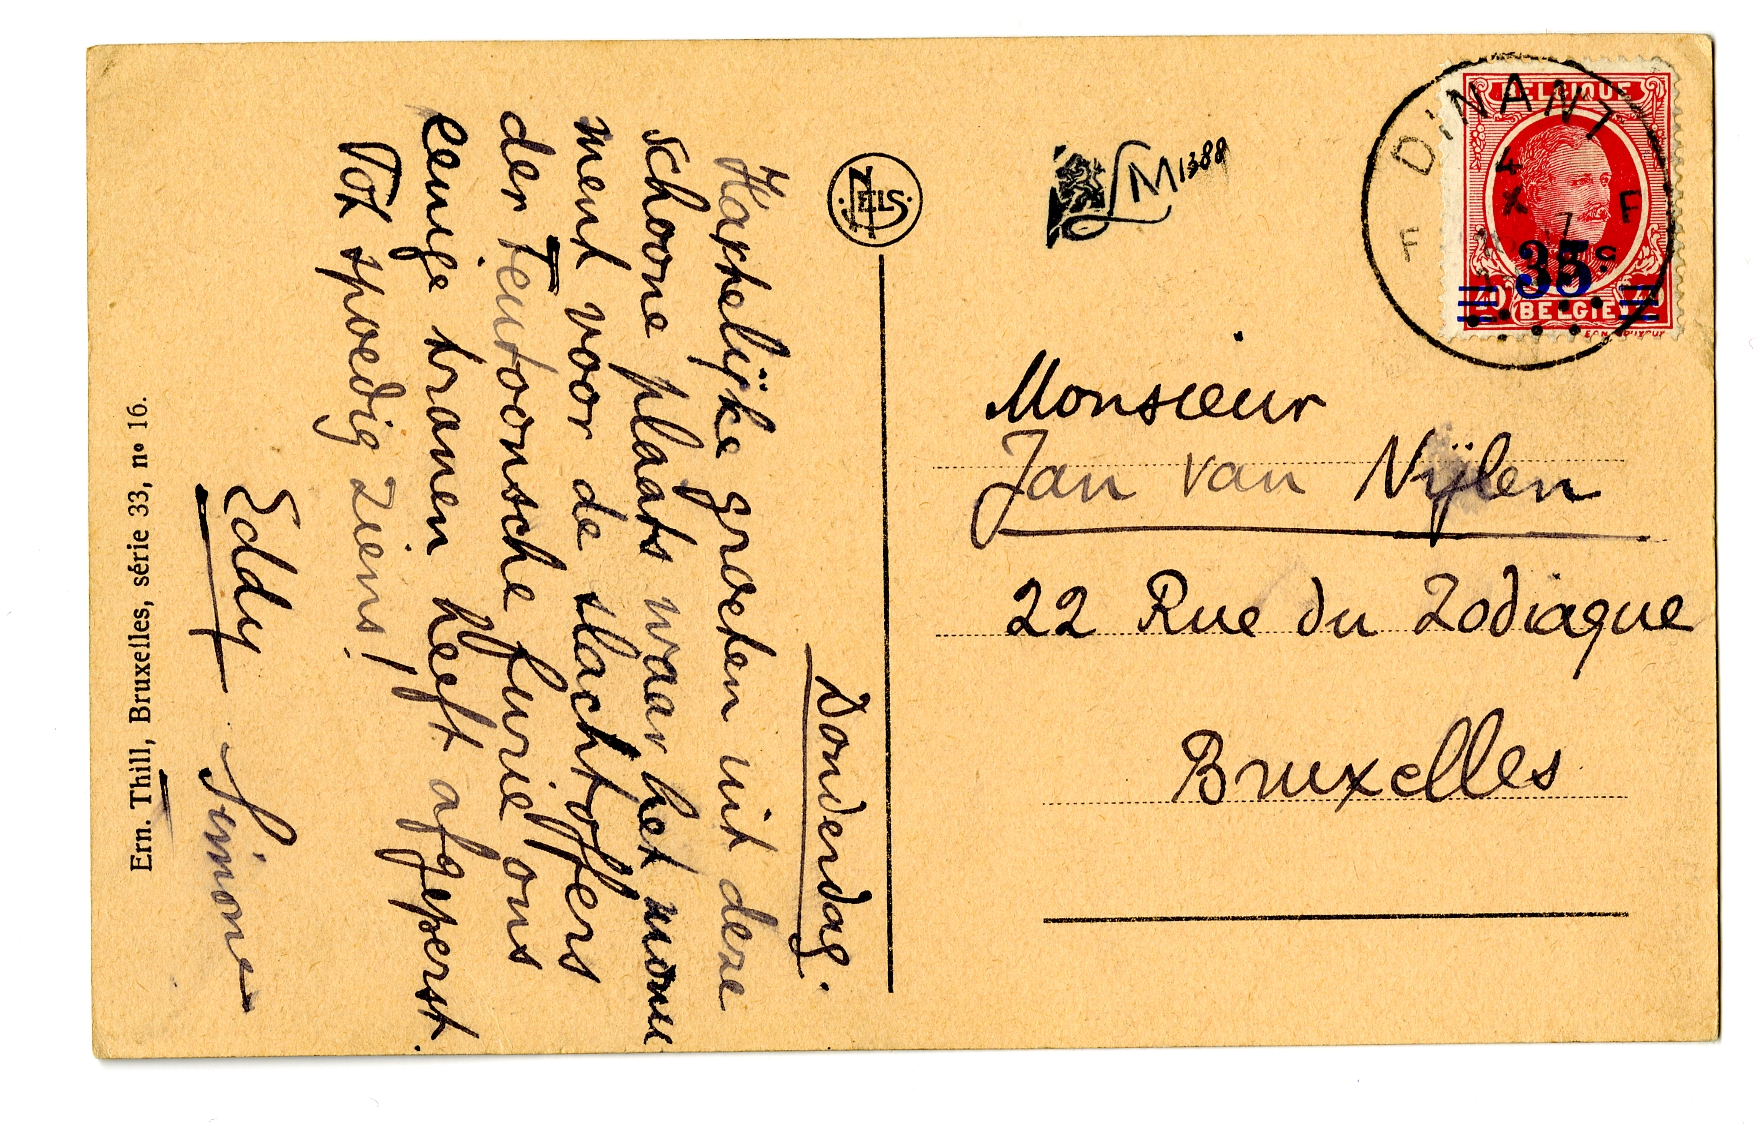 Donderdag.
Hartelijke groeten uit deze
schoone plaats waar het monu
ment voor de slachtoffers
der Teutoonsche furie ons
eenige tranen heeft afgeperst.
Tot spoedig ziens!
Eddy Simone
Ern. Thill, Bruxelles, série 33, nº 16.
NELS
LM 1388
DINANT
4
X
F
F
BELGIQUE
35c
BELGIË
Monsieur
Jan van Nijlen
22 Rue du Zodiaque
Bruxelles